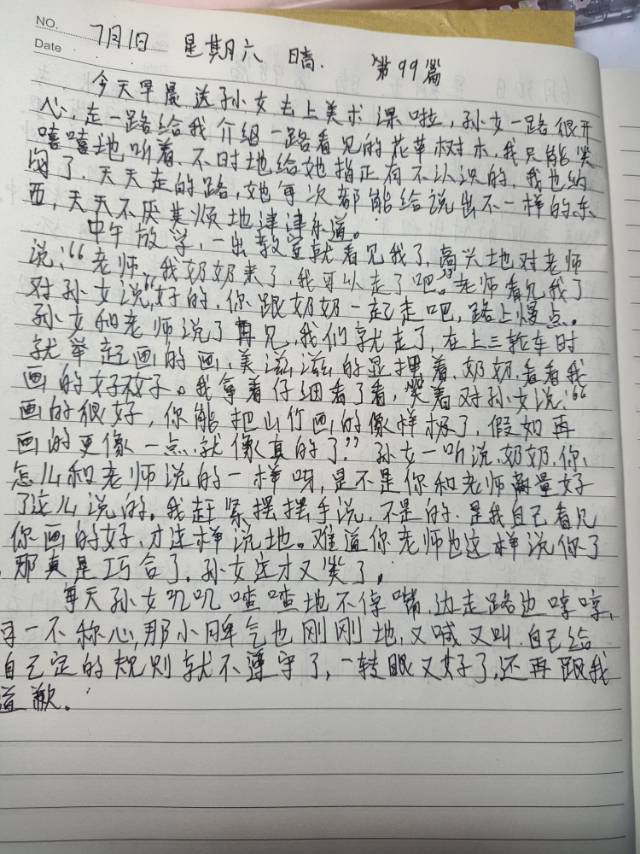 NO.
Date
7月1日 星期六 晴. 第99篇
今天早晨送孙女去上美术课啦,孙女一路很开
心,走一路给我介绍一路看见的花草树木,我只能笑
嘻嘻地听着,不时地给她指正有不认识的,我也纳
闷了,天天走的路,她每次都能给说出不一样的东
西,天天不厌其烦地津津乐道。
中午放学,一出教室就看见我了,高兴地对老师
说:“老师,我奶奶来了,我可以走了吧。”老师看见我了
对孙女说,“好的,你跟奶奶一起走吧,路上慢点。
孙女和老师说了再见,我们就走了,在上三轮车时
就举起画的画,美滋滋的显摆着,奶奶,看看我
画的好不好。我拿着仔细看了看,笑着对孙女说:“
画的很好,你能把山竹画的像样极了,假如再
画的更像一点,就像真的了?”孙女一听说,奶奶,你
怎么和老师说的一样呀,是不是你和老师商量好
了这么说的。我赶紧摆摆手说,不是的,是我自己看见
你画的好,才这样说地。难道你老师也这样说你了
,那真是巧合了。孙女这才又笑了。
每天孙女叽叽喳喳地不停嘴,边走路边哼哼,
一不称心,那小脾气也刚刚地,又喊又叫,自己给
自己定的规则就不遵守了,一转眼又好了,还再跟我
道歉。